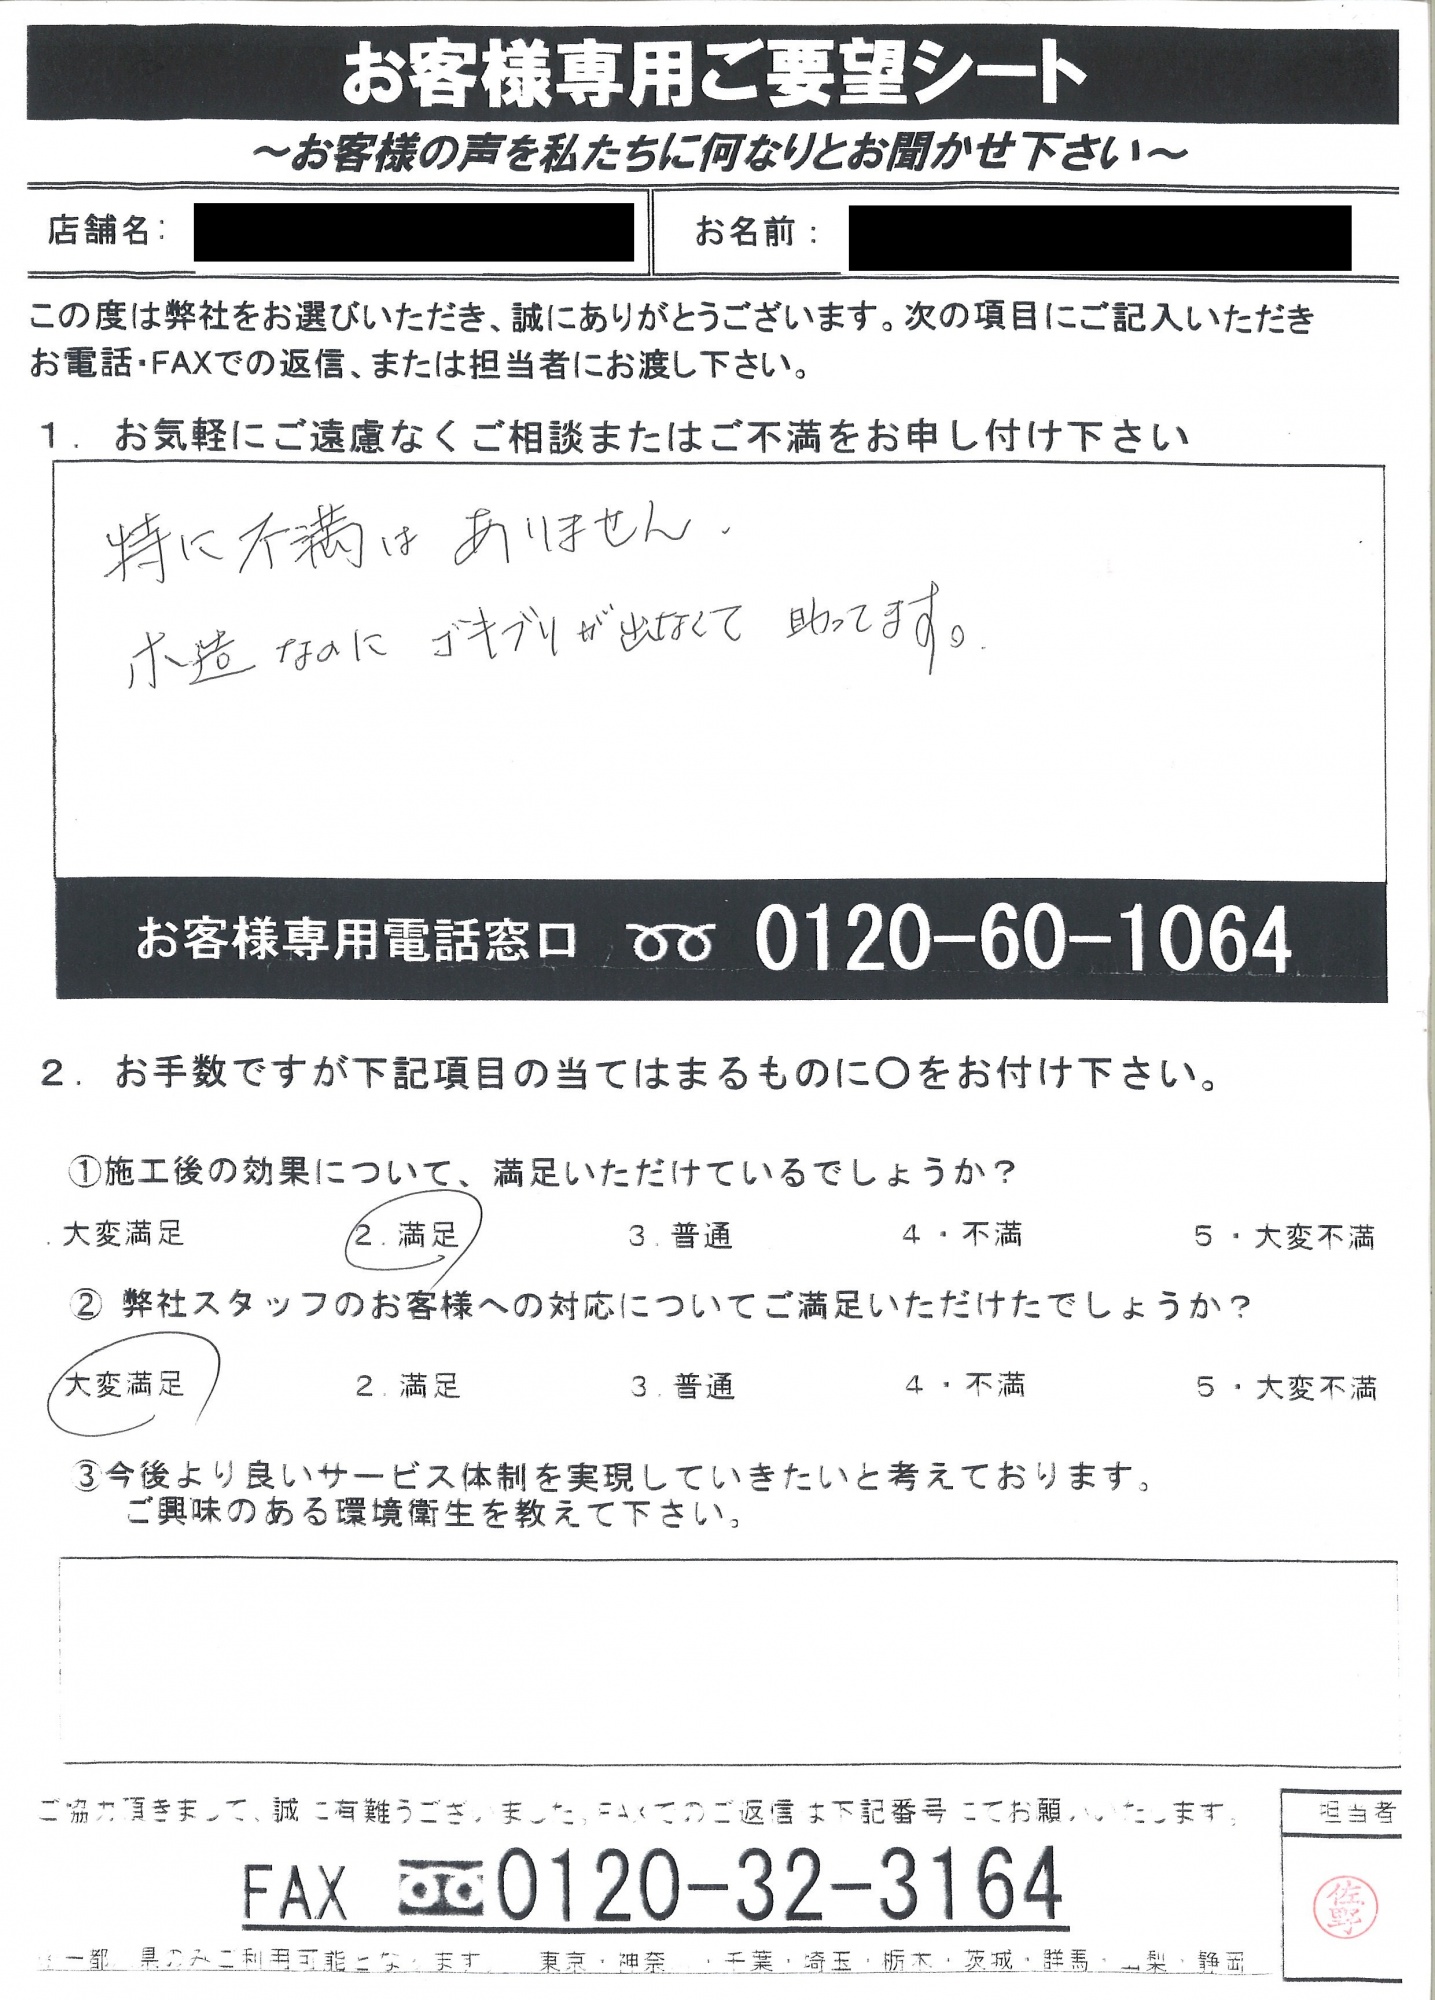 お客様専用ご要望シート
～お客様の声を私たちに何なりとお聞かせ下さい～
店舗名: お名前:
この度は弊社をお選びいただき、誠にありがとうございます。次の項目にご記入いただき
お電話・FAXでの返信、または担当者にお渡し下さい。
1. お気軽にご遠慮なくご相談またはご不満をお申し付け下さい
特に不満はありません.
木造なのにゴキブリが出なくて助ってます。
お客様専用電話窓口 0120-60-1064
2. お手数ですが下記項目の当てはまるものに○をお付け下さい。
①施工後の効果について、満足いただけているでしょうか?
.大変満足 2.満足 3.普通 4・不満 5・大変不満
② 弊社スタッフのお客様への対応についてご満足いただけたでしょうか?
大変満足 2.満足 3.普通 4・不満 5・大変不満
③今後より良いサービス体制を実現していきたいと考えております。
ご興味のある環境衛生を教えて下さい。
ご協力頂きまして、誠に有難うございました。FAXでのご返信は下記番号にてお願いいたします。
担当者
FAX 0120-32-3164
佐野
一都 県のみご利用可能となります。 東京・神奈 ・千葉・埼玉・栃木・茨城・群馬・山梨・静岡